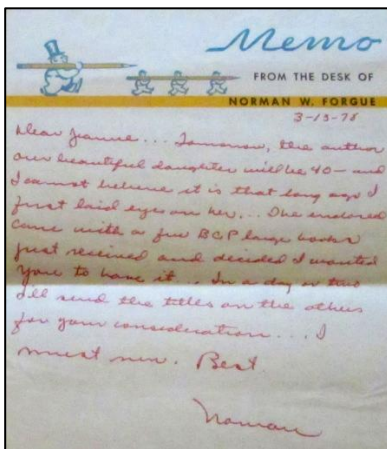 Memo
FROM THE DESK OF
NORMAN W. FORGUE
3-13-78
Dear Jeanne... Tomorrow, the author
our beautiful daughter will be 40 - and
I cannot believe it is that long ago I
first laid eyes on her... The enclosed
came with a few BCP large books
just received and decided I wanted
you to have it... In a day or two
I'll send the titles on the others
for your consideration... I
must run. Best
Norman